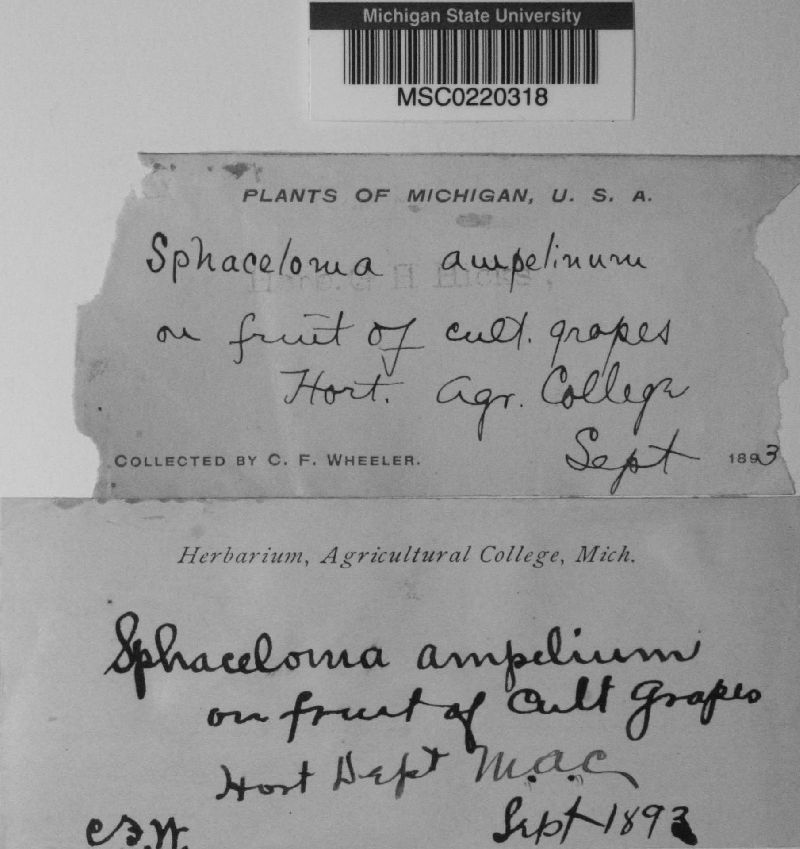 Michigan State University
MSC0220318
PLANTS OF MICHIGAN, U. S. A.
Sphaceloma ampelinum
on fruit of cult. grapes
Hort. Agr. College
COLLECTED BY C. F. WHEELER. Sept 1893
Herbarium, Agricultural College, Mich.
Sphaceloma ampelium
on fruit of Cult Grapes
Hort Dept M.A.C.
C.F.W. Sept 1893